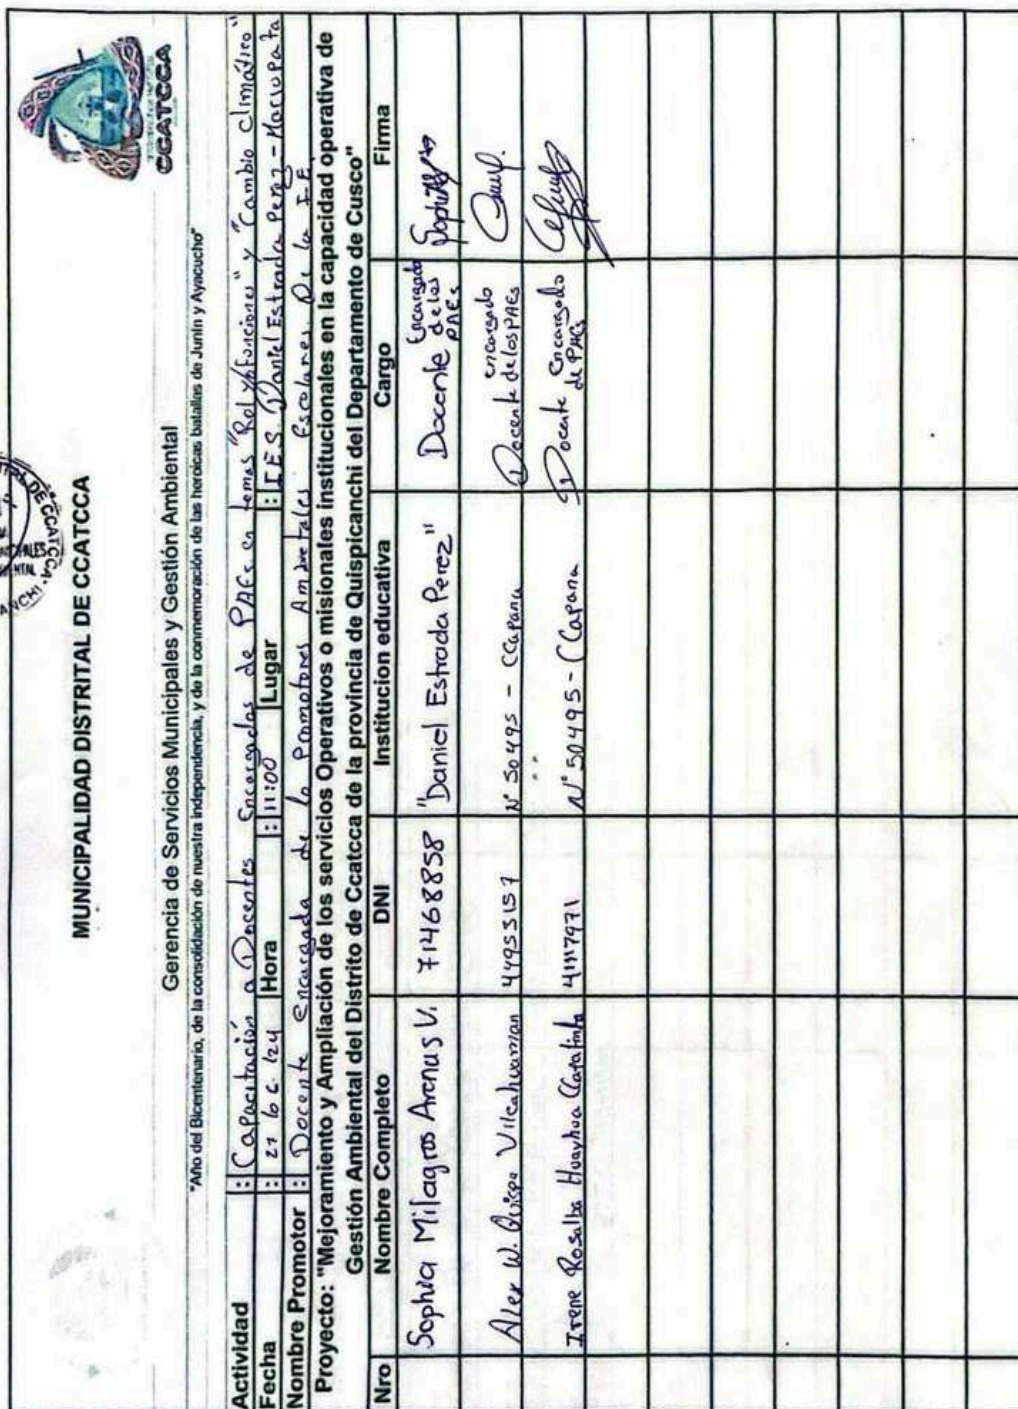 MUNICIPALIDAD DISTRITAL DE CCATCCA
CCATCCA
Gerencia de Servicios Municipales y Gestión Ambiental
"Año del Bicentenario, de la consolidación de nuestra independencia, y de la conmemoración de las heroicas batallas de Junín y Ayacucho"
Actividad : Capacitación a Docentes Encargados de PAEs en temas "Rol y funciones" y "Cambio climático"
Fecha : 27/06/24 Hora : 11:00 Lugar : I.E.S. Daniel Estrada Perez -
Nombre Promotor : Docente encargada de lo Promotores Ambietales Escolares De la I.E
Proyecto: "Mejoramiento y Ampliación de los servicios Operativos o misionales institucionales en la capacidad operativa de
Gestión Ambiental del Distrito de Ccatcca de la provincia de Quispicanchi del Departamento de Cusco"
Nro Nombre Completo DNI Institucion educativa Cargo Firma
Sophia Milagros Arenas V. 71468858 "Daniel Estrada Perez" Docente Encargado de los PAEs
Alex W. Quispe Vilcahuaman 44953157 N° 50495 - Ccapana Docente encargado de los PAEs
Irene Rosalba Huayhua N° 50495 - Ccapana Docente encargado de PAEs